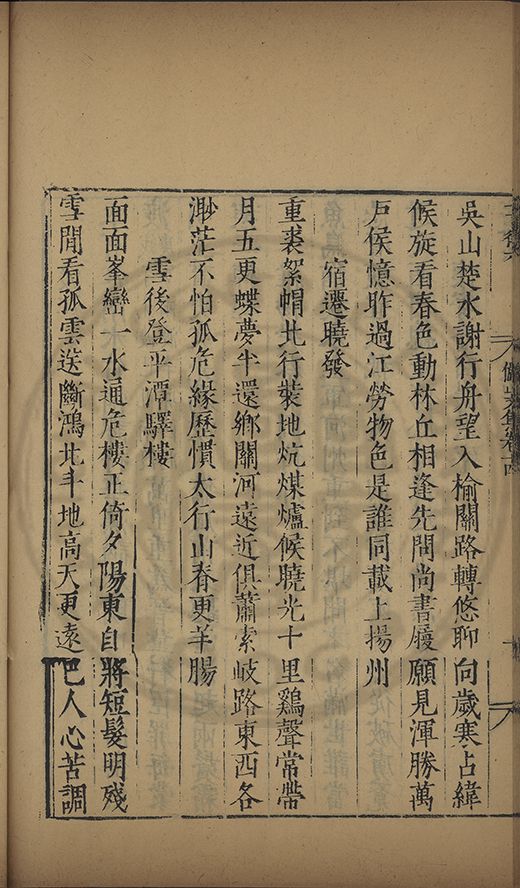 吳山楚水謝行舟望入榆關路轉悠聊向歲寒占緯
候旋看春色動林丘相逢先問尚書履願見渾勝萬
戶侯憶昨過江勞物色是誰同載上揚州
宿遷曉發
重裘絮帽北行裝地炕煤爐候曉光十里鷄聲常帶
月五更蝶夢半還鄉關河遠近俱蕭索岐路東西各
渺茫不怕孤危緣歷慣太行山春更羊腸
雪後登平潭驛樓
面面峯巒一水通危樓正倚夕陽東自將短髮明殘
雪閒看孤雲送斷鴻北斗地高天更遠巴人心苦調